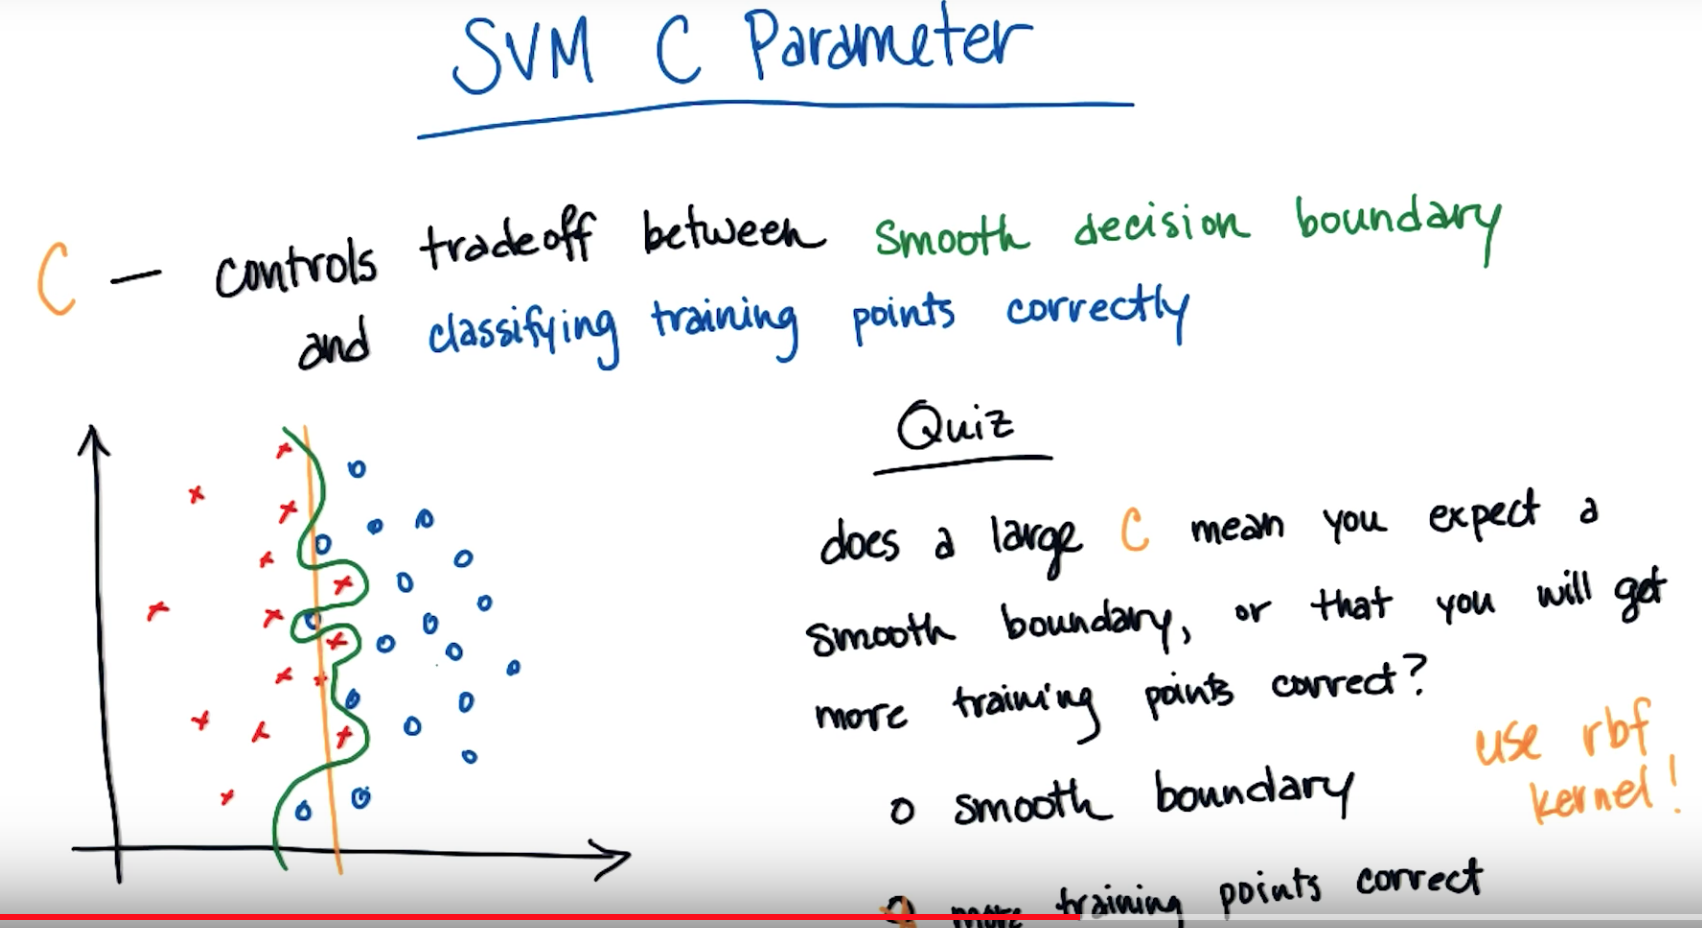 SVM C Parameter
C — controls tradeoff between smooth decision boundary
and classifying training points correctly
Quiz
does a large C mean you expect a
smooth boundary, or that you will get
more training points correct?
o smooth boundary
use rbf
kernel!
o more training points correct